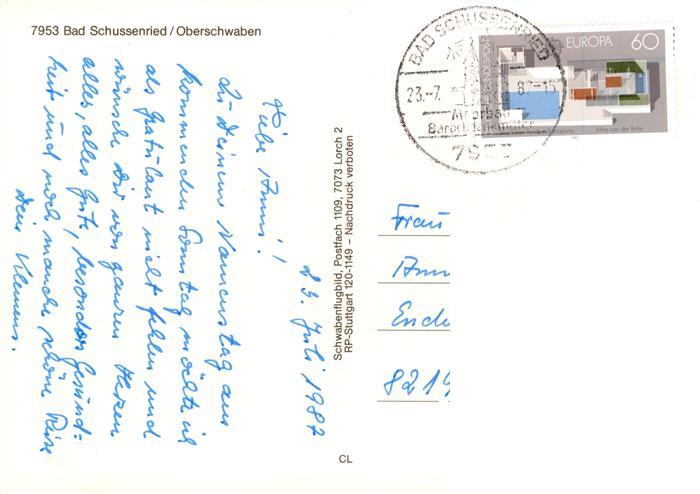 7953 Bad Schussenried/Oberschwaben
23. Juli 1987
Liebe Anni!
Zu Deinem Namenstag am
kommenden Sonntag möchte ich
als Gratulant nicht fehlen und
wünsche Dir von ganzem Herzen
alles, alles Gute, besonders Gesund=
heit und noch manche schöne Reise
Dein Klemens.
Schwabenflugbild, Postfach 1109, 7073 Lorch 2
RP-Stuttgart 120-1149 – Nachdruck verboten
CL
BAD SCHUSSENRIED
23.-7. 87-15
Barockdenkmäler
7953
EUROPA 60
Mies van der Rohe
Frau
Ann
Ende
8219